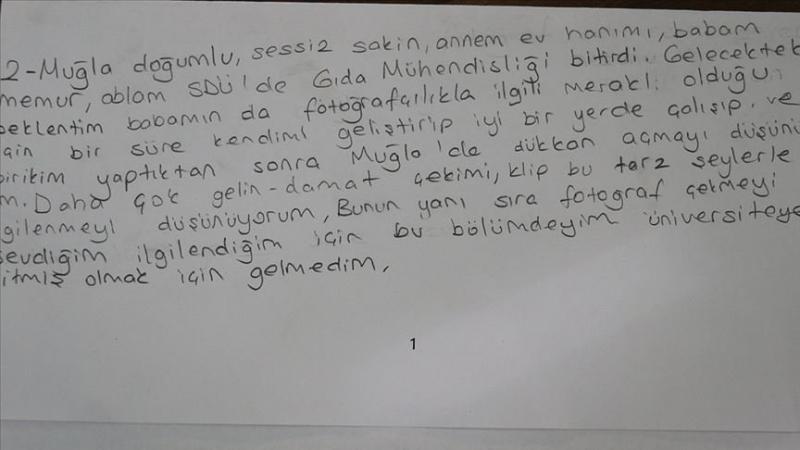 2-Muğla doğumlu, sessiz sakin, annem ev hanımı, babam
memur, ablam SDÜ'de Gıda Mühendisliği bitirdi. Gelecektek
beklentim babamın da fotoğrafçılıkla ilgili meraklı olduğu
için bir süre kendimi geliştirip iyi bir yerde çalışıp. ve
birikim yaptıktan sonra Muğla'da dükkan açmayı düşünü
m. Daha çok gelin-damat çekimi, klip bu tarz şeylerle
gilenmeyi düşünüyorum, Bunun yanı sıra fotoğraf çekmeyi
sevdiğim ilgilendiğim için bu bölümdeyim üniversiteye
itmiş olmak için gelmedim,
1